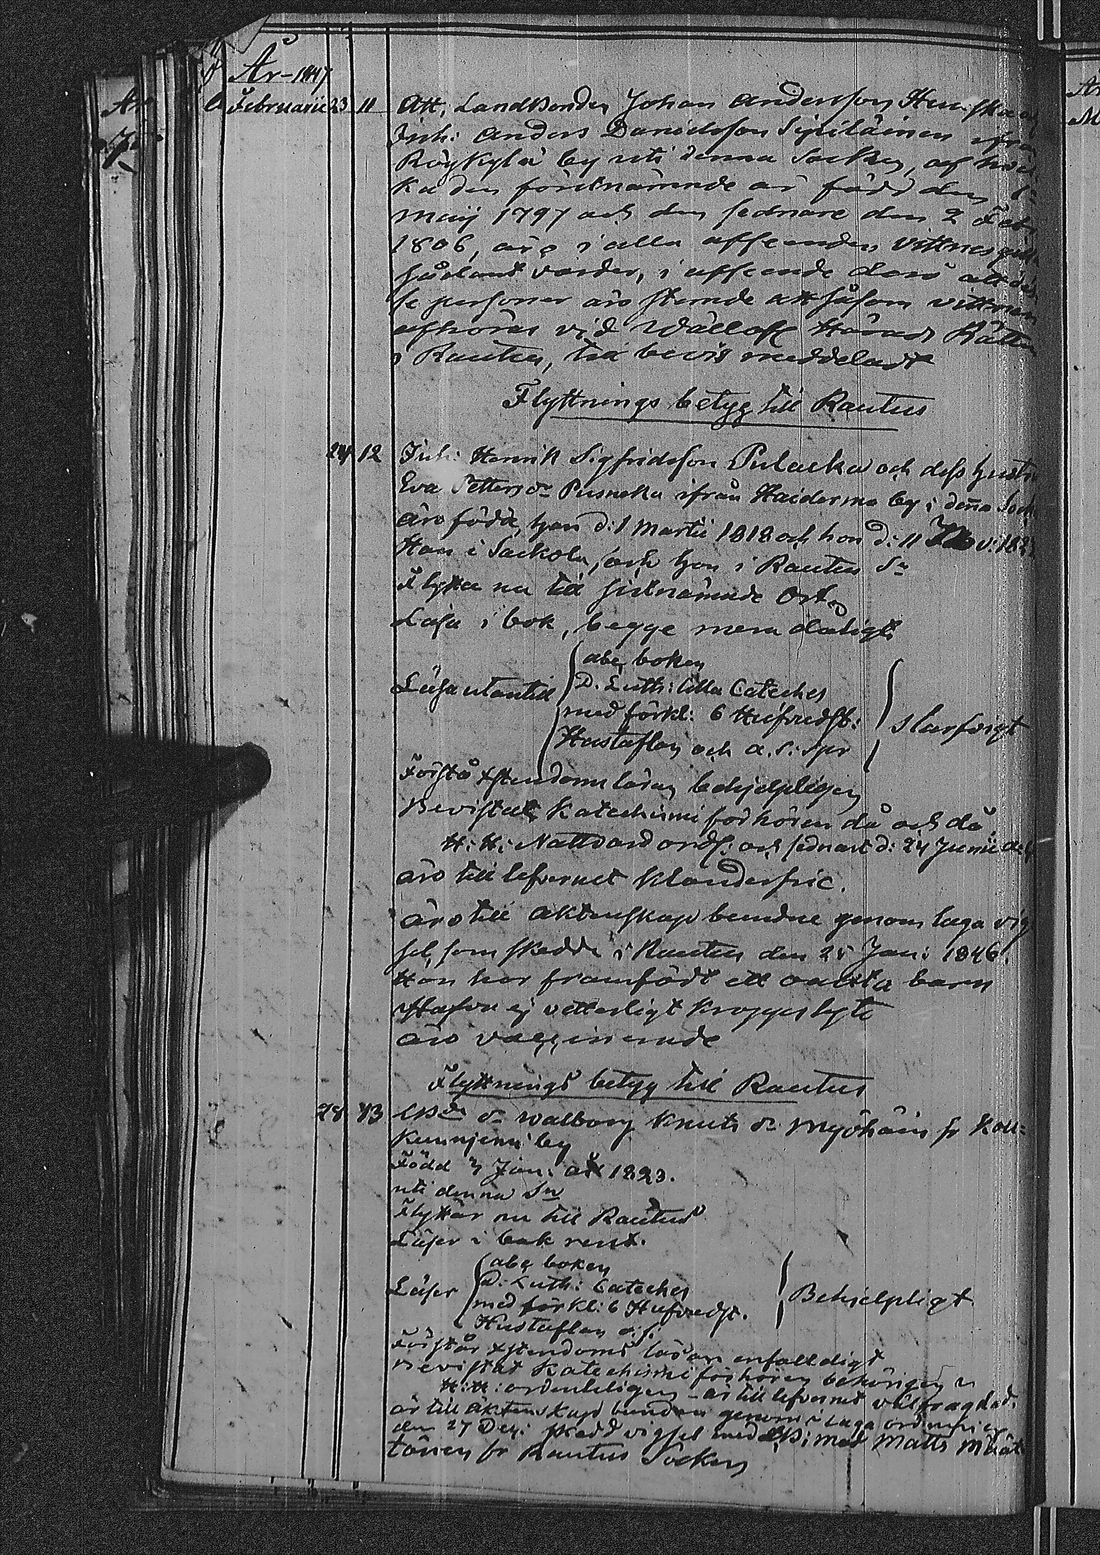 År 1847
Februarii 23 11 Att, Landbonden Johan Andersson
Inh: Anders Danielsson Sipiläinen ifrån
Röykylä by uti denna Socken, af hvil
ka den förstnämnde är född den
Maij 1797 och den sednare den 2 Febr
1806, äro i alla afseenden vittnesgill
warder, i afseende deraf att des
se personer äro stemde att såsom vittnen
afhöras vid Härads Rätten
i Rautus, till bevis meddeladt
Flyttnings betyg till Rautus
24 12 Inh: Henrik Sigfridsson Pulacka och dess hustru
Eva Petters dr Pusneka ifrån Haiderma by i denna Sock
äro födda, han d: 1 Martii 1818 och hon d: 11 Nov: 182
Han i Sackola, och hon i Rautus Sn
Flytta nu till sistnämnde Ort
Läsa i bok, begge mera dåligt
Läsa utantill abc boken
D. Luth: lilla Cateches
med förkl: 6 Hufvudst:
Hustaflan och a. s: spr
slarfvigt
Förstå Xstendoms läran behjelpligen
Bevistat Katechismi förhören då och då
H: H: Nattvard ordf: och sednast d: 24 Junii
äro till lefvernet klanderfrie.
äro till äktenskap bundne genom laga vig
sel, som skedde i Rautus den 25 Jan: 1846.
Hon har framfödt ett oäkta barn
Hafva ej vetterligt kroppslyte
äro vaccinerade
Flyttnings betyg till Rautus
28 13 Walborg Knuts dr Myöhäin fr Kou=
kunniemi by
Född 3 Jan: år 1823.
uti denna Sn
Flyttar nu till Rautus
Läser i bok rent.
Läser abc boken
D: Luth: Cateches
med förkl: 6 Hufvudst.
Hustaflan
Behjelpligt
Förstår Xstendoms läran enfalldigt
Bevistat Katechismi förhören behörigen
H: H: ordentligen är till lefvernet välfrägdad.
är till äktenskap bunden genom i laga ordning
den 27 Dec: skedd vigsel med Matts
fr Rautus Socken